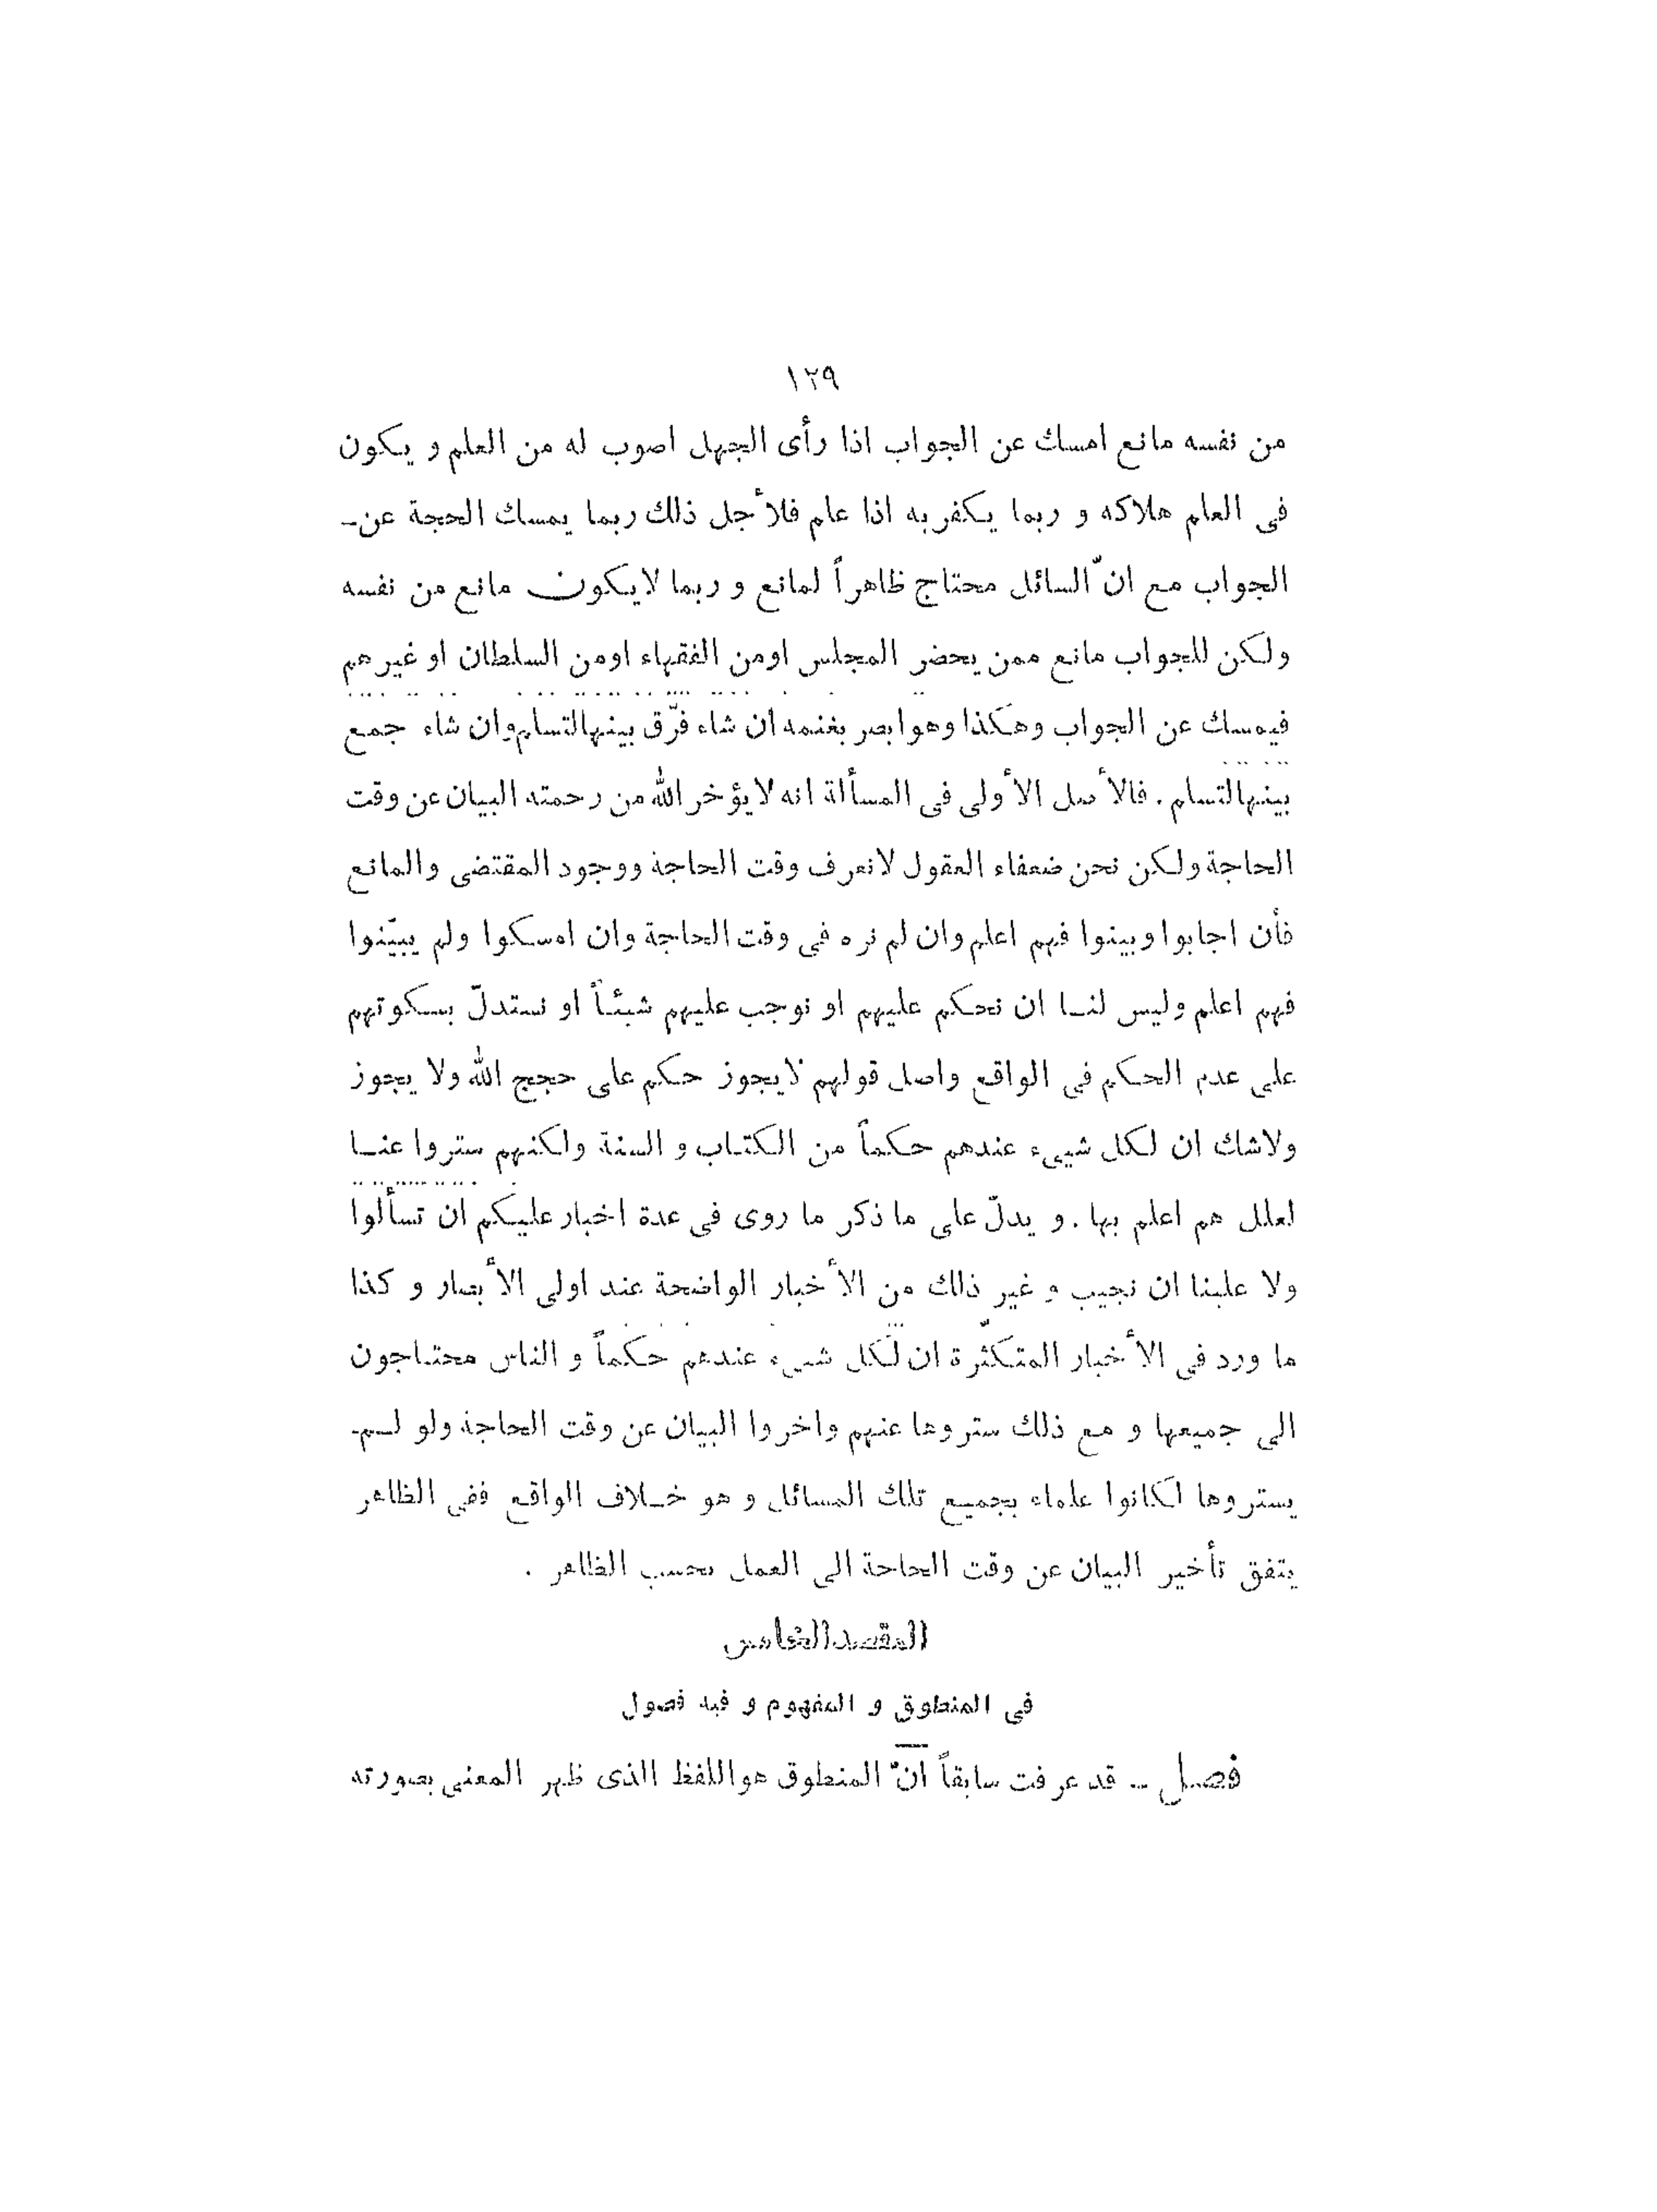 ١٢٩
من نفسه مانع امسك عن الجواب اذا رأى الجهل اصوب له من العلم و يكون
فى العلم هلاكه و ربما يكفر به اذا علم فلأجل ذلك ربما يمسك الحجة عن-
الجواب مع انّ السائل محتاج ظاهراً لمانع و ربما لايكون مانع من نفسه
ولكن للجواب مانع ممن يحضر المجلس اومن الفقهاء اومن السلطان او غيرهم
فيمسك عن الجواب وهكذا وهو ابصر بغنمه ان شاء فرّق بينهالتسلم وان شاء جمع
بينهالتسلم . فالأصل الأولى فى المسألة انه لايؤخر الله من رحمته البيان عن وقت
الحاجة ولكن نحن ضعفاء العقول لانعرف وقت الحاجة ووجود المقتضى والمانع
فأن اجابوا وبينوا فهم اعلم وان لم نره فى وقت الحاجة وان امسكوا ولم يبيّنوا
فهم اعلم وليس لنا ان نحكم عليهم او نوجب عليهم شيئاً او نستدلّ بسكوتهم
على عدم الحكم فى الواقع واصل قولهم لايجوز حكم على حجج الله ولا يجوز
ولاشك ان لكل شيىء عندهم حكماً من الكتاب و السنة ولكنهم ستروا عنا
لعلل هم اعلم بها . و يدلّ على ما ذكر ما روى فى عدة اخبار عليكم ان تسألوا
ولا علينا ان نجيب و غير ذلك من الأخبار الواضحة عند اولى الأبصار و كذا
ما ورد فى الأخبار المتكثّرة ان لكل شيىء عندهم حكماً و الناس محتاجون
الى جميعها و مع ذلك ستروها عنهم واخروا البيان عن وقت الحاجة ولو لم-
يستروها لكانوا علماء بجميع تلك المسائل و هو خلاف الواقع ففى الظاهر
يتفق تأخير البيان عن وقت الحاجة الى العمل بحسب الظاهر .
المقصد الخامس
فى المنطوق و المفهوم و فيه فصول
فصل - قد عرفت سابقاً انّ المنطوق هواللفظ الذى ظهر المعنى بصورته